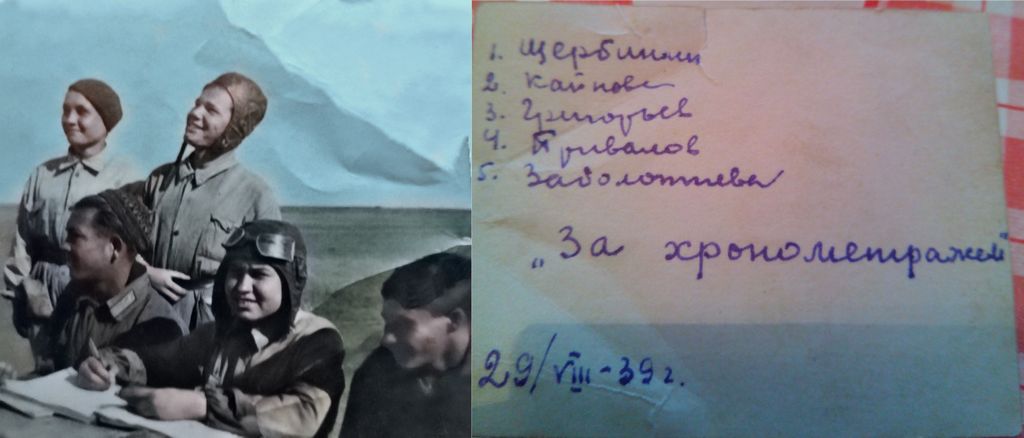 1. Щербинин
2. Кайнова
3. Григорьев
4. Привалов
5. Заболотнева
„За хронометражем"
29/VIII-39 г.